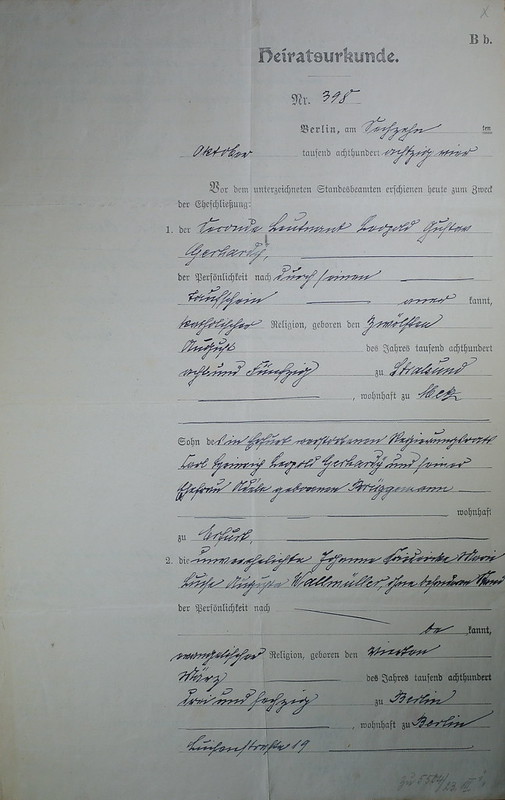 B b.
Heiratsurkunde.
Nr. 398
Berlin, am Sechzehn ten
Oktober tausend achthundert achtzig vier
Vor dem unterzeichneten Standesbeamten erschienen heute zum Zweck
der Eheschließung:
1. der Seconde Leutnant Leopold Gustav
Gerhardy,
der Persönlichkeit nach durch seinen
Taufschein aner kannt,
katholischer Religion, geboren den zwölften
August des Jahres tausend achthundert
acht und fünfzig zu Stralsund
, wohnhaft zu Metz
Sohn des in Erfurt verstorbenen Regierungsrats
Carl Heinrich Leopold Gerhardy und seiner
Ehefrau Adele geborenen Brüggemann
wohnhaft
zu Erfurt,
2. die unverehelichte Johanne Friederike Marie
Luise Auguste Wallmüller, ohne besonderen Stand
der Persönlichkeit nach
be kannt,
evangelischer Religion, geboren den vierten
März des Jahres tausend achthundert
drei und sechzig zu Berlin
, wohnhaft zu Berlin
Luisenstraße 19